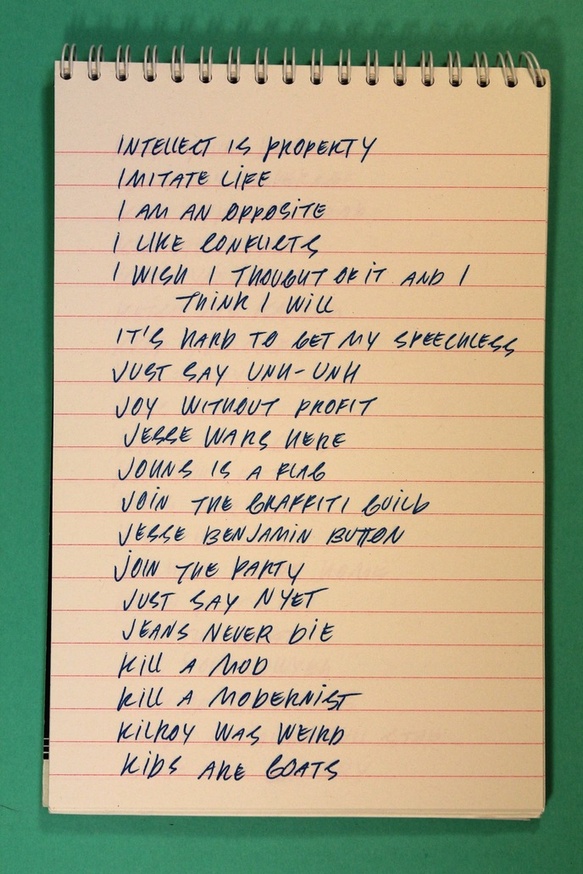 INTELLECT IS PROPERTY
IMITATE LIFE
I AM AN OPPOSITE
I LIKE CONFLICTS
I WISH I THOUGHT OF IT AND I
THINK I WILL
IT'S HARD TO GET MY SPEECHLESS
JUST SAY UNH-UNH
JOY WITHOUT PROFIT
JESSE WARS HERE
JOHNS IS A FLAG
JOIN THE GRAFFITI GUILD
JESSE BENJAMIN BUTTON
JOIN THE PARTY
JUST SAY NYET
JEANS NEVER DIE
KILL A MOD
KILL A MODERNIST
KILROY WAS WEIRD
KIDS ARE GOATS